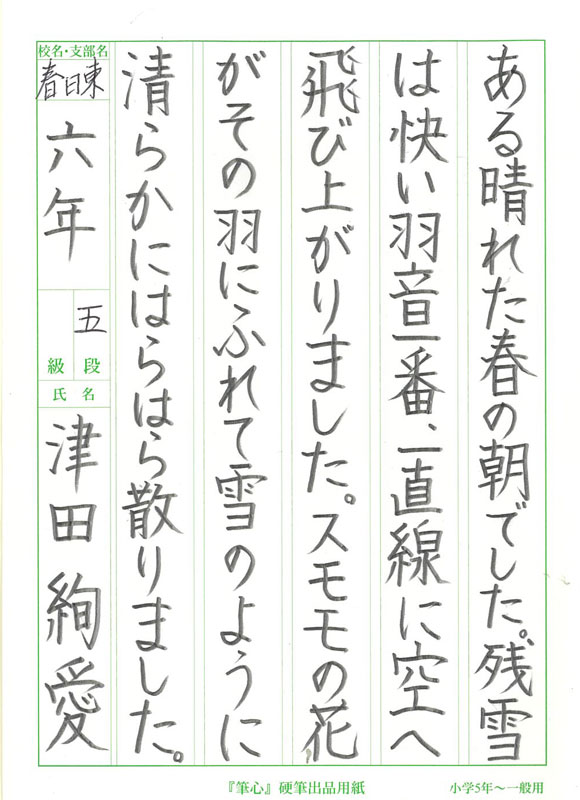 ある晴れた春の朝でした。残雪
は快い羽音一番、一直線に空へ
飛び上がりました。スモモの花
がその羽にふれて雪のように
清らかにはらはら散りました。
校名・支部名
春日東
六年
五
段
級
氏名
津田絢愛
『筆心』硬筆出品用紙
小学5年〜一般用